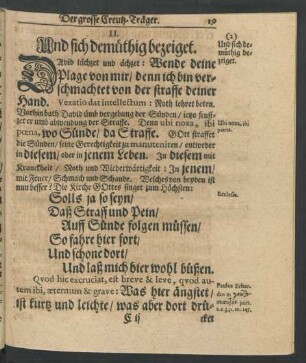 Der grosse Creutz-Träger. 19
II.
Und sich demüthig bezeiget.
(2)
Und sich de-
müthig be-
zeiget.
David lächzet und ächzet: Wende deine
Plage von mir / denn ich bin ver-
schmachtet von der straffe deiner
Hand. Vexatio dat intellectum: Noth lehret beten.
Vorhin bath David umb vergebung der Sünden / itzo seuff-
zet er umb abwendung der Straffe. Denn ubi noxa, ibi
pœna, wo Sünde / da Straffe. GOtt straffet
Ubi noxa, ibi
pœna.
die Sünden / seine Gerechtigkeit zu manuteniren / entweder
in diesem / oder in jenem Leben. In diesem mit
Kranckheit / Noth und Wiederwärtigkeit: In jenem /
mit Feuer / Schmach und Schande. Welches von beyden ist
nun besser? Die Kirche GOttes singet zum Höchsten:
Ecclesia.
Solls ja so seyn /
Daß Straff und Pein /
Auff Sünde folgen müssen /
So fahre hier fort /
Und schone dort /
Und laß mich hier wohl büßen.
Quod hic excruciat, est breve & leve, quod au-
tem ibi, æternum & grave: Was hier ängstet /
ist kurtz und leichte / was aber dort drü-
C ij
cket